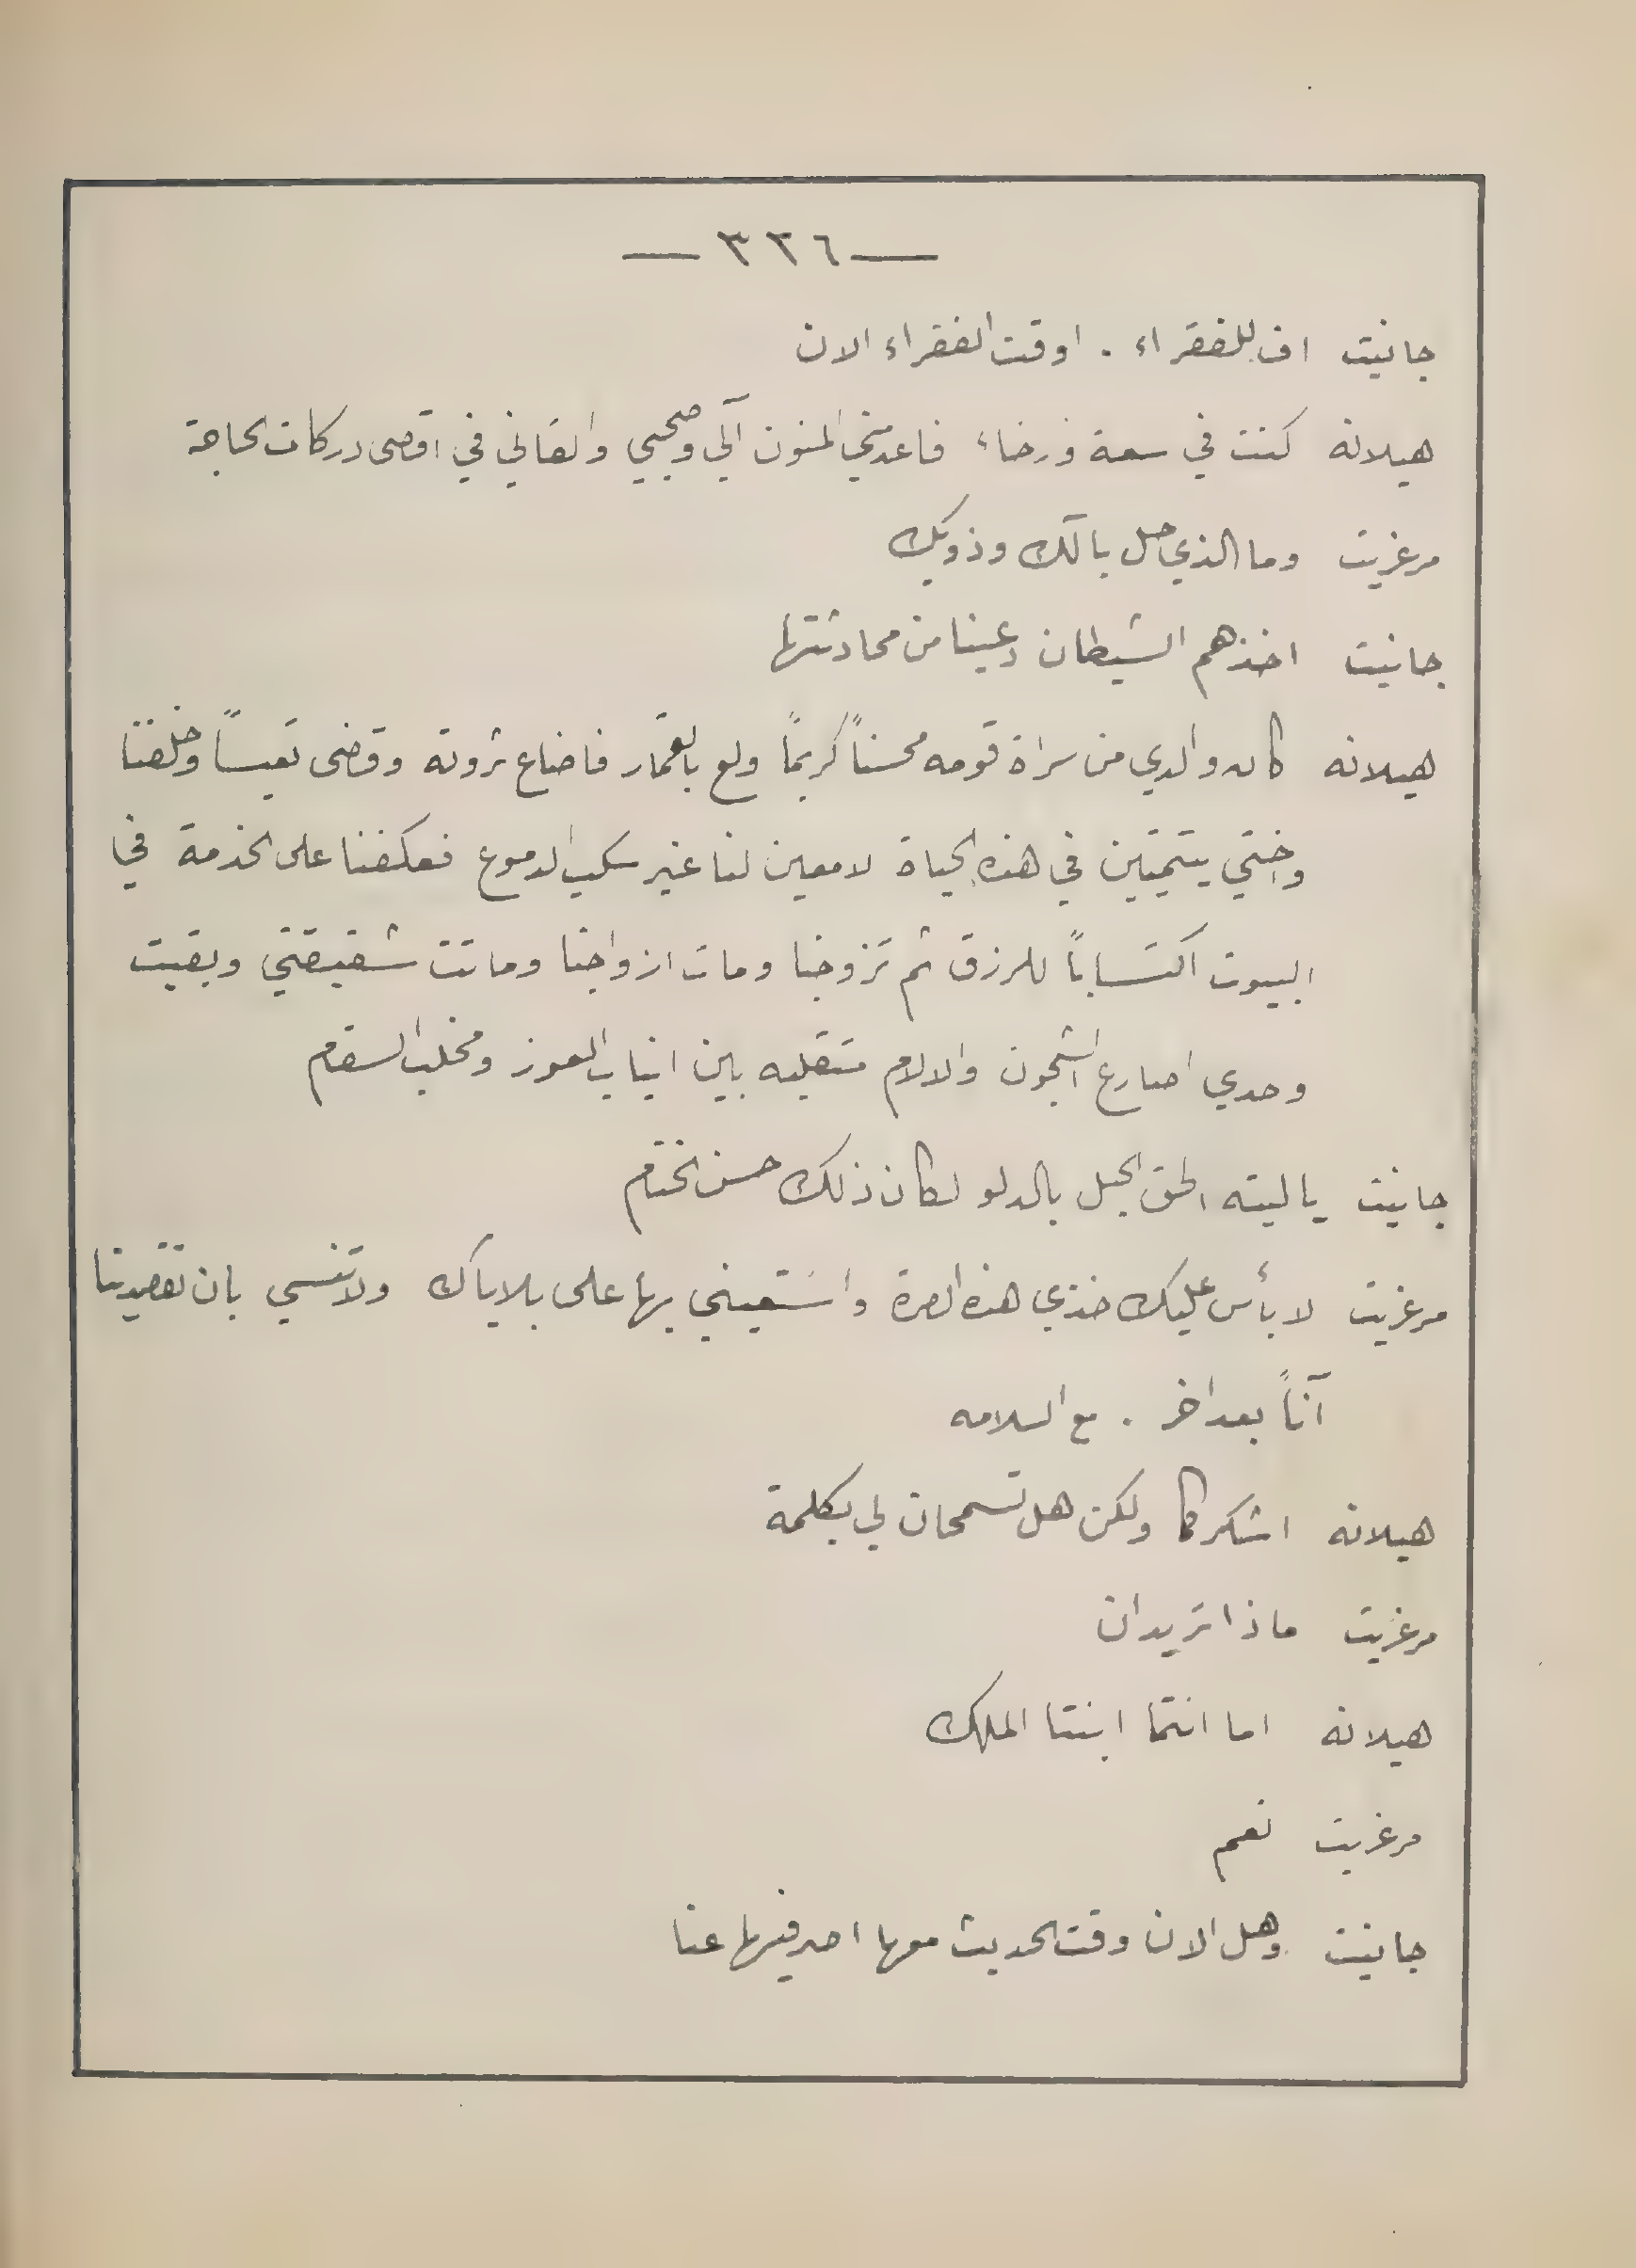 — ٣٣٦ —
جانيت اف للفقراء . اوقت الفقراء الان
هيلانه كنت في سعة ورخاء فاعدمتني المنون آلي وصحبي والقاني في اقصى دركات الحاجة
مرغريت وما الذي حل بآلك وذويك
جانيت اخذهم الشيطان دعينا من محادثتها
هيلانه كان والدي من سراة قومه محسناً كريماً ولع بالقمار فاضاع ثروته وقضى تعيساً وخلفنا
واختي يتيمتين في هذه الحياة لا معين لنا غير سكب الدموع فعكفنا على الخدمة في
البيوت اكتساباً للرزق ثم تزوجنا ومات ازواجنا وماتت شقيقتي وبقيت
وحدي اصارع الشجون والالام متقلبه بين انياب العوز ومخلب السقام
جانيت يا ليته الحق الحبل بالدلو لكان ذلك حسن الختام
مرغريت لا بأس عليك خذي هذه الصرة واستعيني بها على بلاياك ولا تنسي بان تقصدينا
آناً بعد اخر . مع السلامه
هيلانه اشكركما ولكن هل تسمحان لي بكلمة
مرغريت ماذا تريدان
هيلانه اما انتما ابنتا الملك
مرغريت نعم
جانيت وهل الان وقت الحديث معها اصرفيها عنا